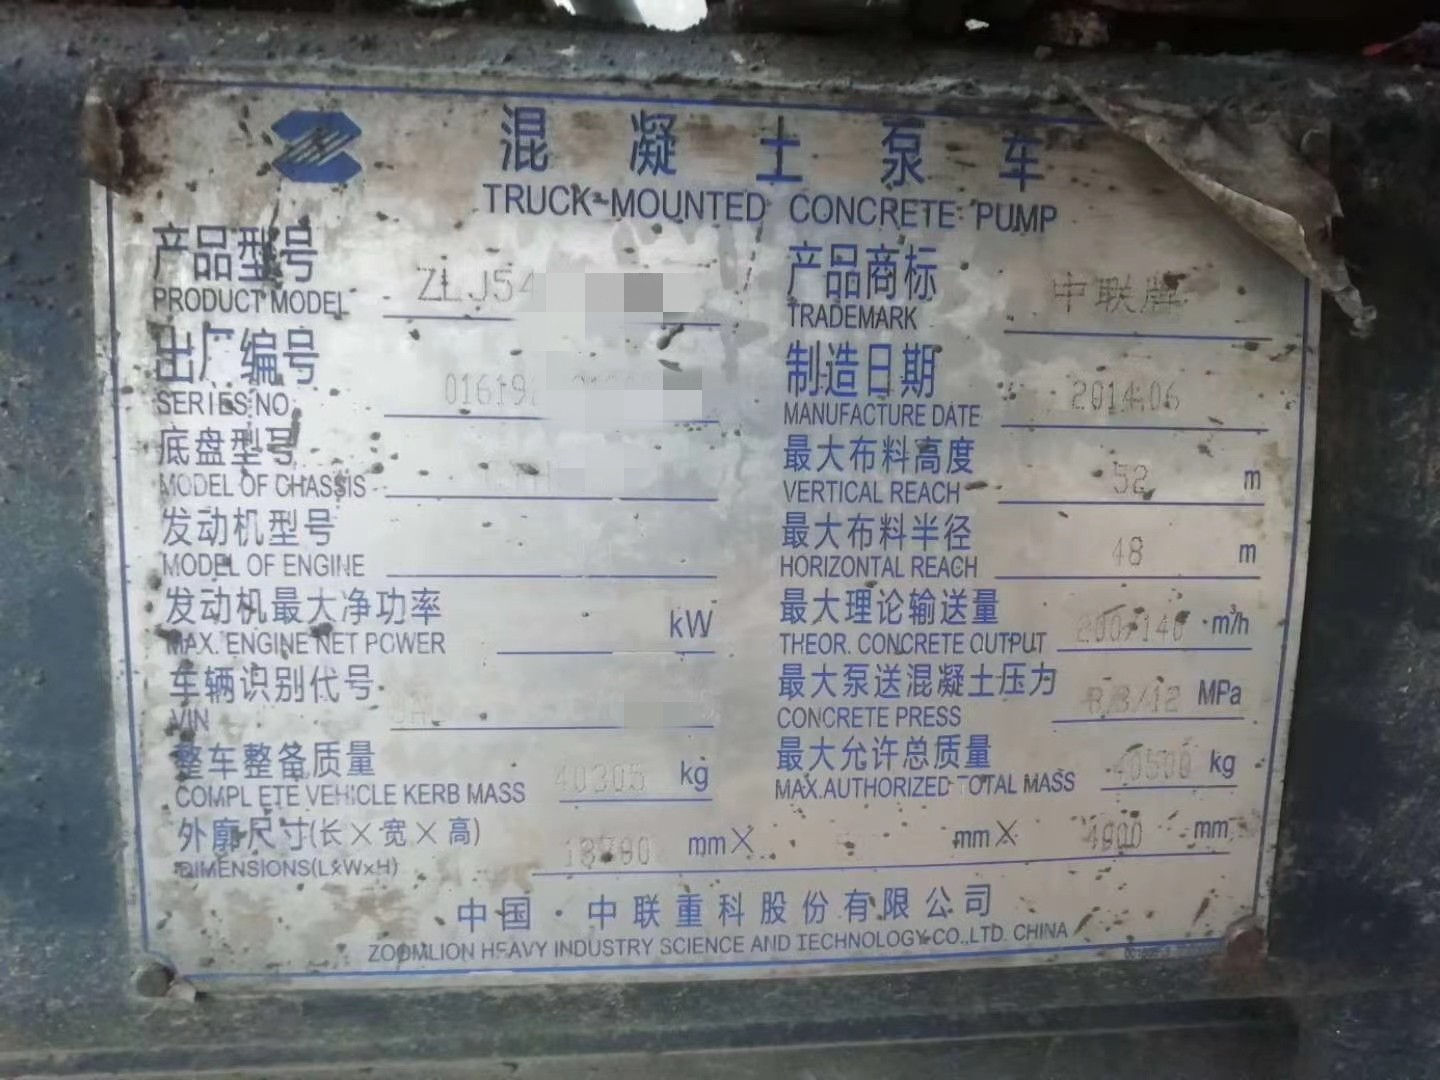 混凝土泵车
TRUCK-MOUNTED CONCRETE PUMP
产品型号 ZLJ54
PRODUCT MODEL
产品商标 中联牌
TRADEMARK
出厂编号 01619
SERIES NO.
制造日期 2014.06
MANUFACTURE DATE
底盘型号
MODEL OF CHASSIS
最大布料高度 52 m
VERTICAL REACH
发动机型号
MODEL OF ENGINE
最大布料半径 48 m
HORIZONTAL REACH
发动机最大净功率 kW
MAX. ENGINE NET POWER
最大理论输送量 200/140 m³/h
THEOR. CONCRETE OUTPUT
车辆识别代号
VIN
最大泵送混凝土压力 MPa
CONCRETE PRESS
整车整备质量 40305 kg
COMPLETE VEHICLE KERB MASS
最大允许总质量 40500 kg
MAX.AUTHORIZED TOTAL MASS
外廓尺寸(长×宽×高) mm× mm× mm
DIMENSIONS(L×W×H)
中国·中联重科股份有限公司
ZOOMLION HEAVY INDUSTRY SCIENCE AND TECHNOLOGY CO.,LTD. CHINA